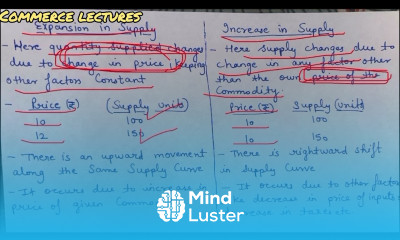 Commerce Lectures
Expansion in Supply
- Here quantity supplied changes
due to change in price, keeping
other factors Constant
- Price (₹) (Supply units)
10 100
12 150
- There is an upward movement
along the Same Supply Curve
- It occurs due to increase in
price of given Commo
Increase in Supply
- Here supply changes due to
change in any factor other
than the own price of the
Commodity.
Price (₹) Supply (Units)
10 100
10 150
- There is rightward shift
in Supply Curve
- It occurs due to other factors
decrease in price of inputs
Mind
Luster